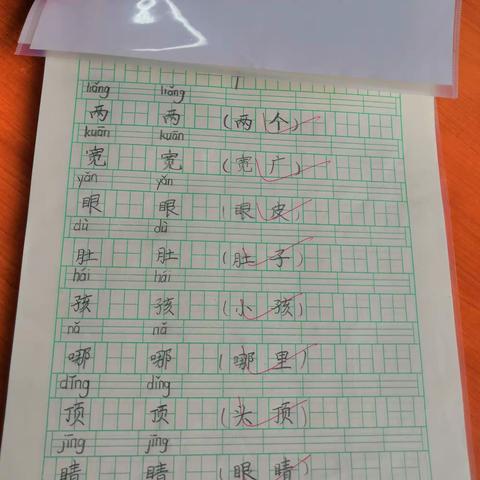 1
liǎng liǎng
两 两 (两个)
kuān kuān
宽 宽 (宽广)
yǎn yǎn
眼 眼 (眼皮)
dù dù
肚 肚 (肚子)
hái hái
孩 孩 (小孩)
nǎ nǎ
哪 哪 (哪里)
dǐng dǐng
顶 顶 (头顶)
jīng jīng
睛 睛 (眼睛)